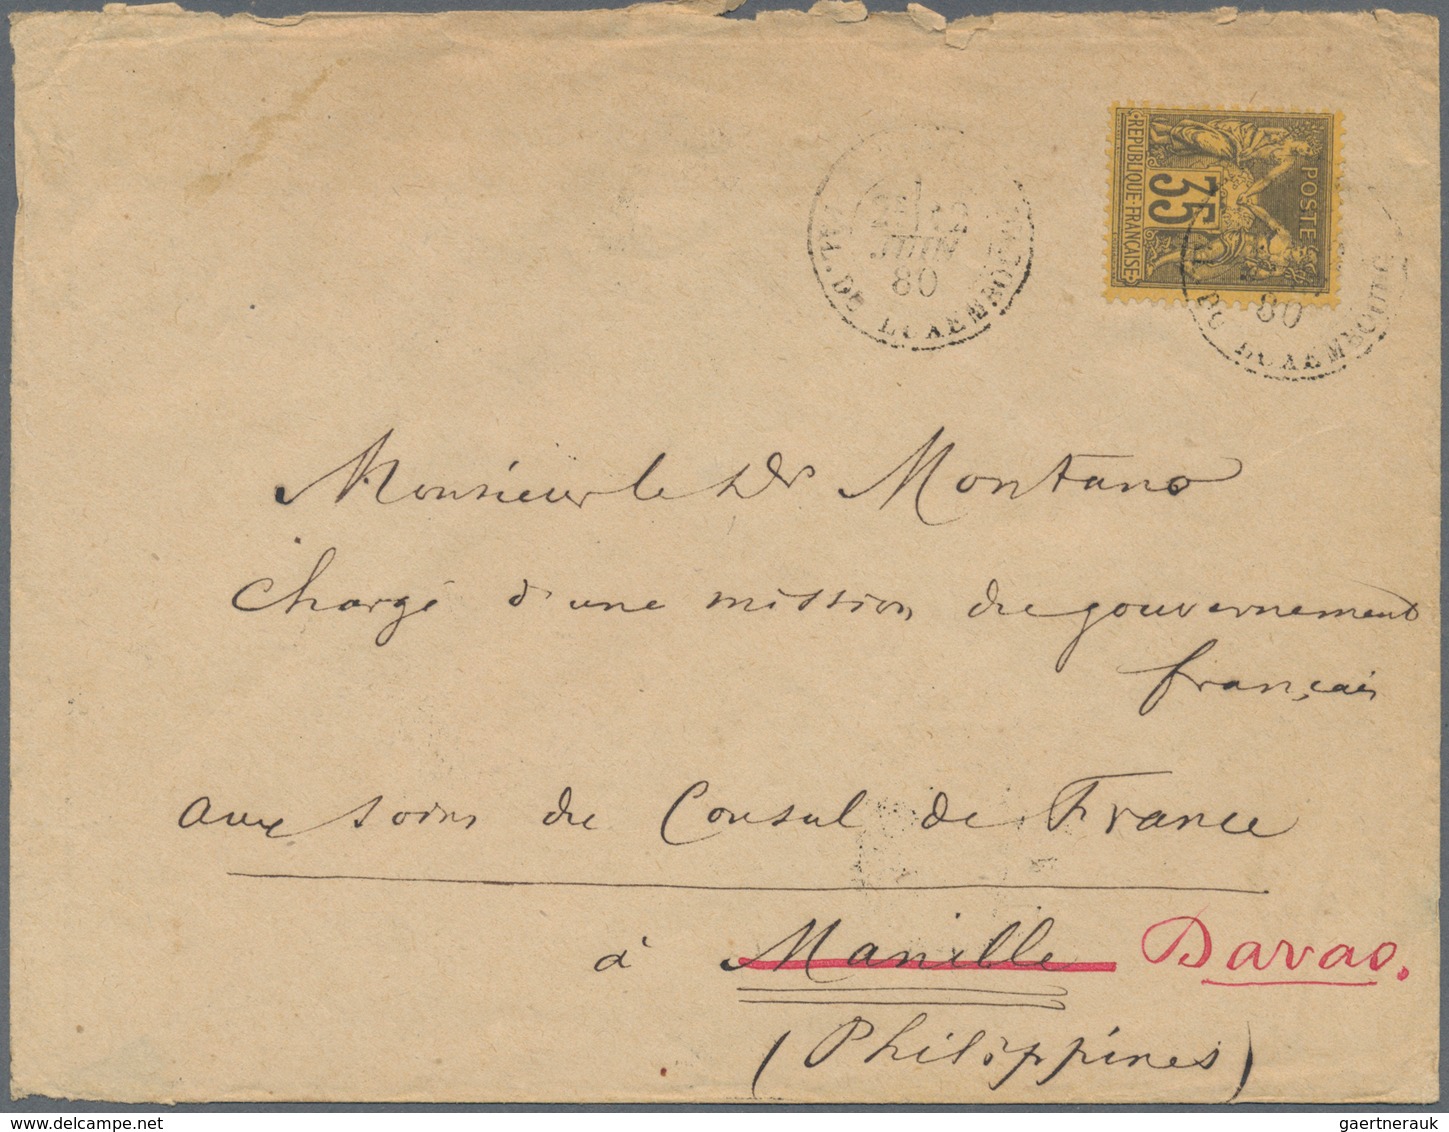 RÉPUBLIQUE FRANÇAISE
35
POSTES
12
JUIN
80
PAL. DU LUXEMBOURG
80
DU LUXEMBOURG
Monsieur le Dr Montano
Chargé d'une mission du gouvernement
français
aux soins du Consul de France
à Manille Davao.
(Philippines)
www.delcampe.net
gaertnerauk